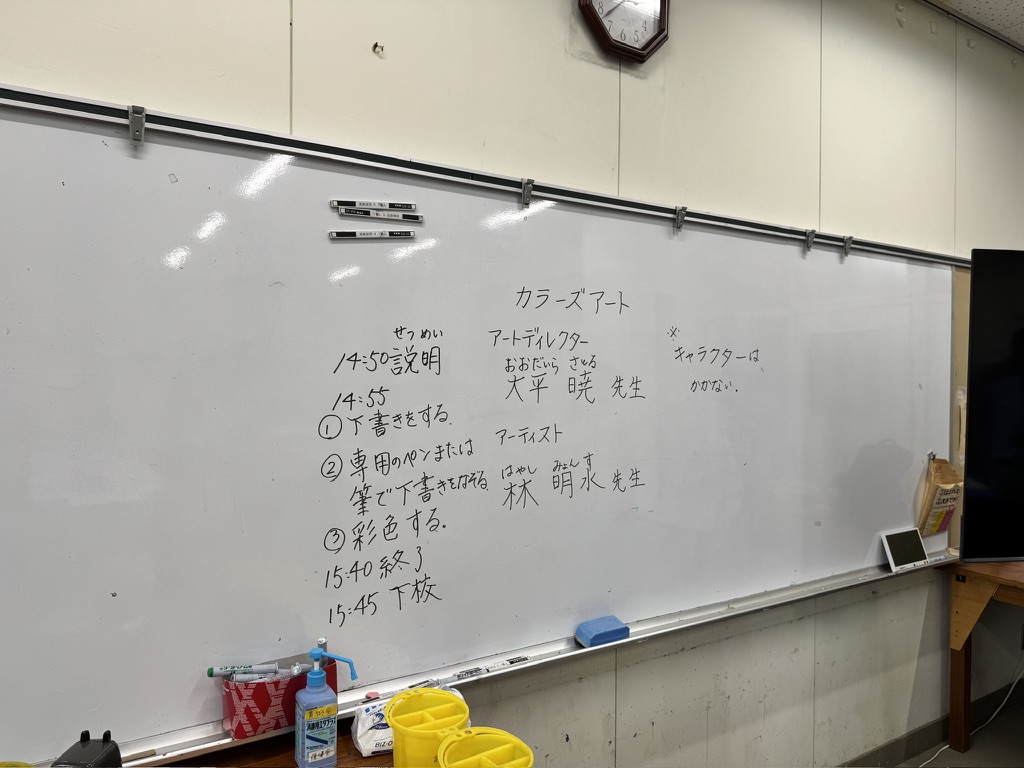 カラーズアート
せつめい
14:50 説明
14:55
①下書きをする.
②専用のペンまたは
筆で下書きをなぞる
③彩色する.
15:40 終了
15:45 下校
アートディレクター
おおだいら さとる
大平 暁 先生
アーティスト
はやし みょんす
林 明水 先生
※
キャラクターは
かかない.
8
7
6
5
4
BIZ-O